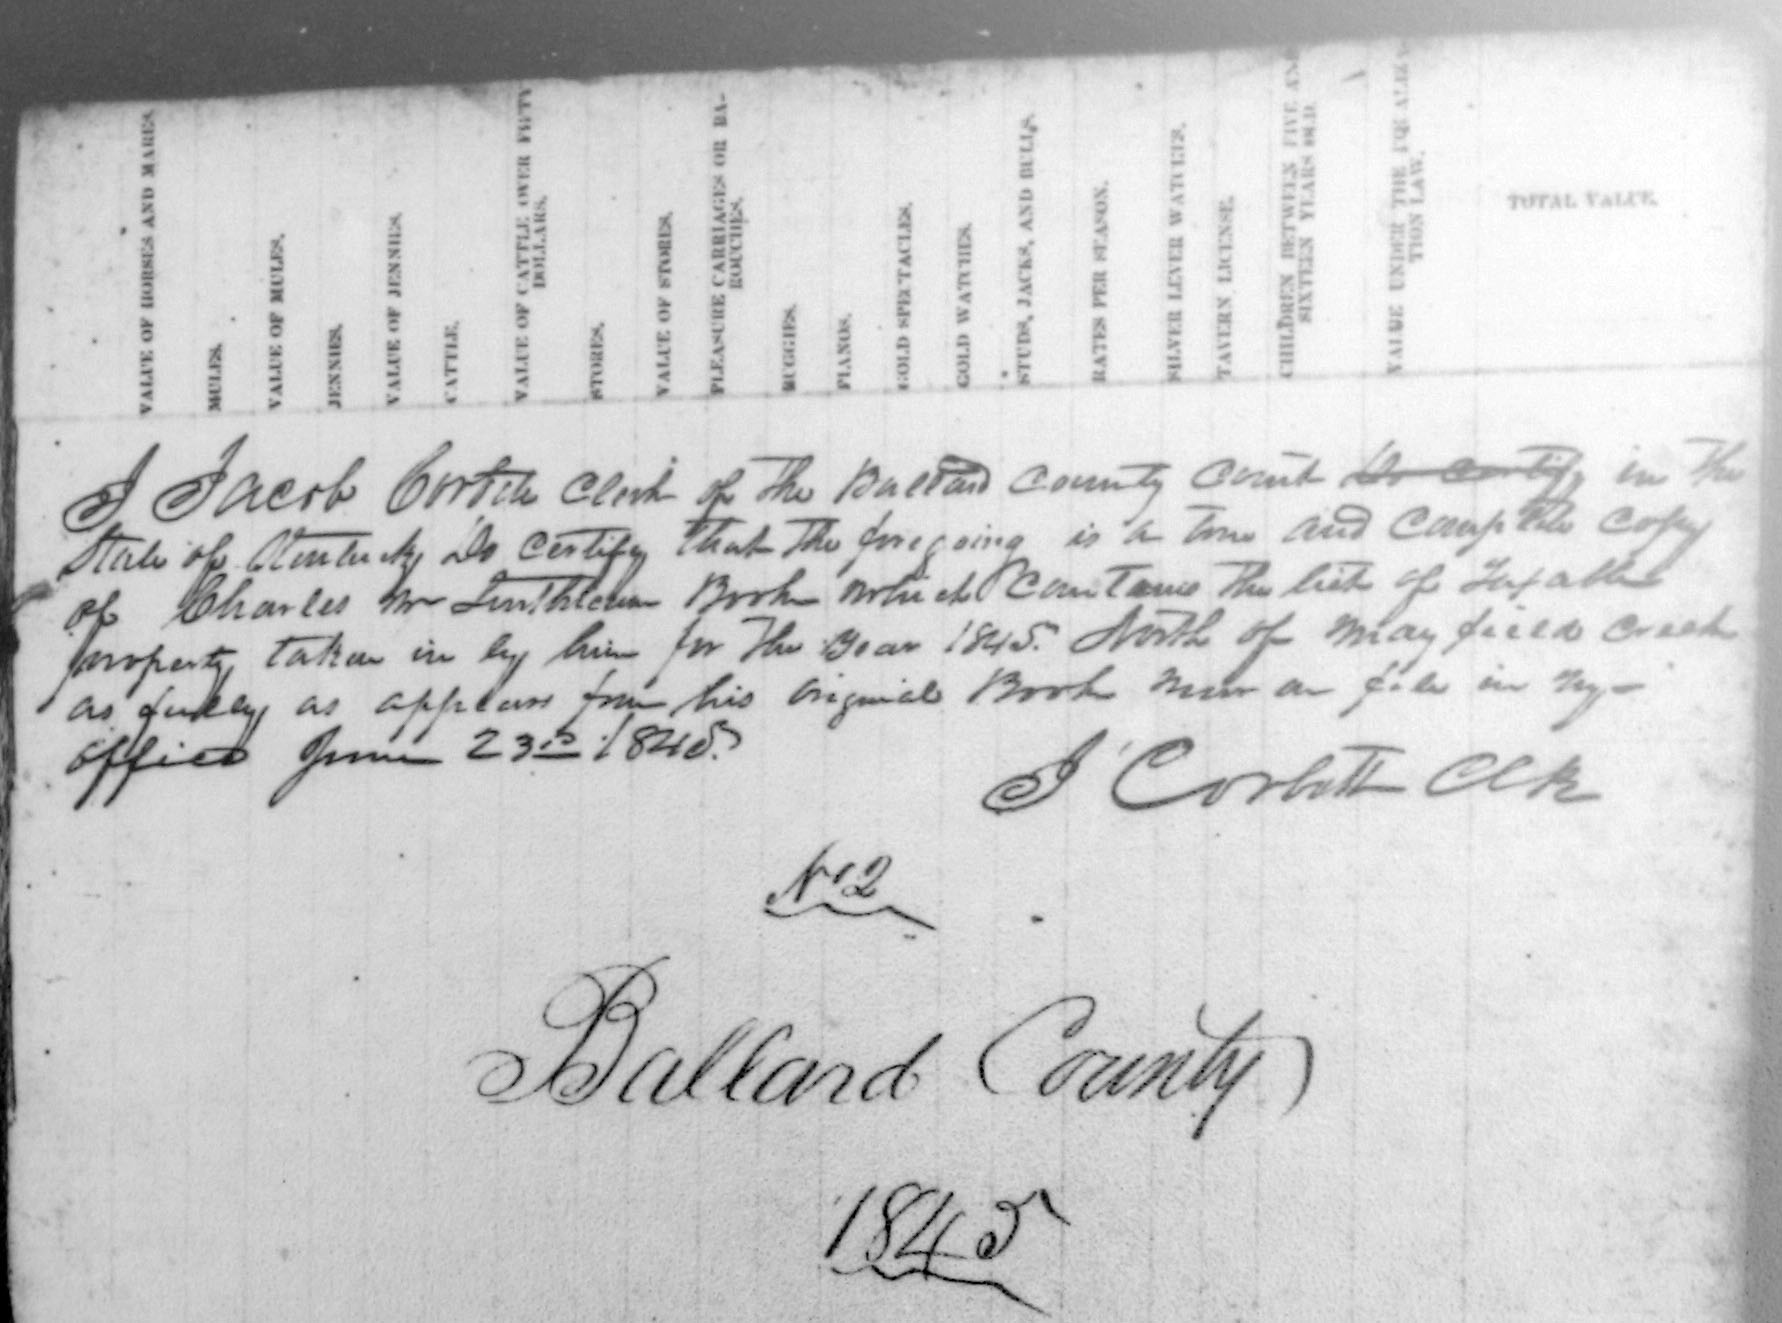 VALUE OF HORSES AND MARES.
MULES.
VALUE OF MULES.
JENNIES.
VALUE OF JENNIES.
CATTLE.
VALUE OF CATTLE OVER FIFTY
DOLLARS.
STORES.
VALUE OF STORES.
PLEASURE CARRIAGES OR BA-
ROUCHES.
BUGGIES.
PIANOS.
GOLD SPECTACLES.
GOLD WATCHES.
STUDS, JACKS, AND BULLS.
RATES PER SEASON.
SILVER LEVER WATCHES.
TAVERN LICENSE.
CHILDREN BETWEEN FIVE AND
SIXTEEN YEARS OLD.
VALUE UNDER THE EQUALIZA-
TION LAW.
TOTAL VALUE.
I Jacob Corbett Clerk of the Ballard County Court Do Certify in the
State of Kentucky Do Certify that the foregoing is a true and Complete Copy
of Charles Book which Contains the list of Taxable
property taken in by him for the Year 1845. North of Mayfield Creek
as fully as appears from his original Book now on file in my
office June 23rd 1845.
J Corbett Clk
No 2
Ballard County
1845